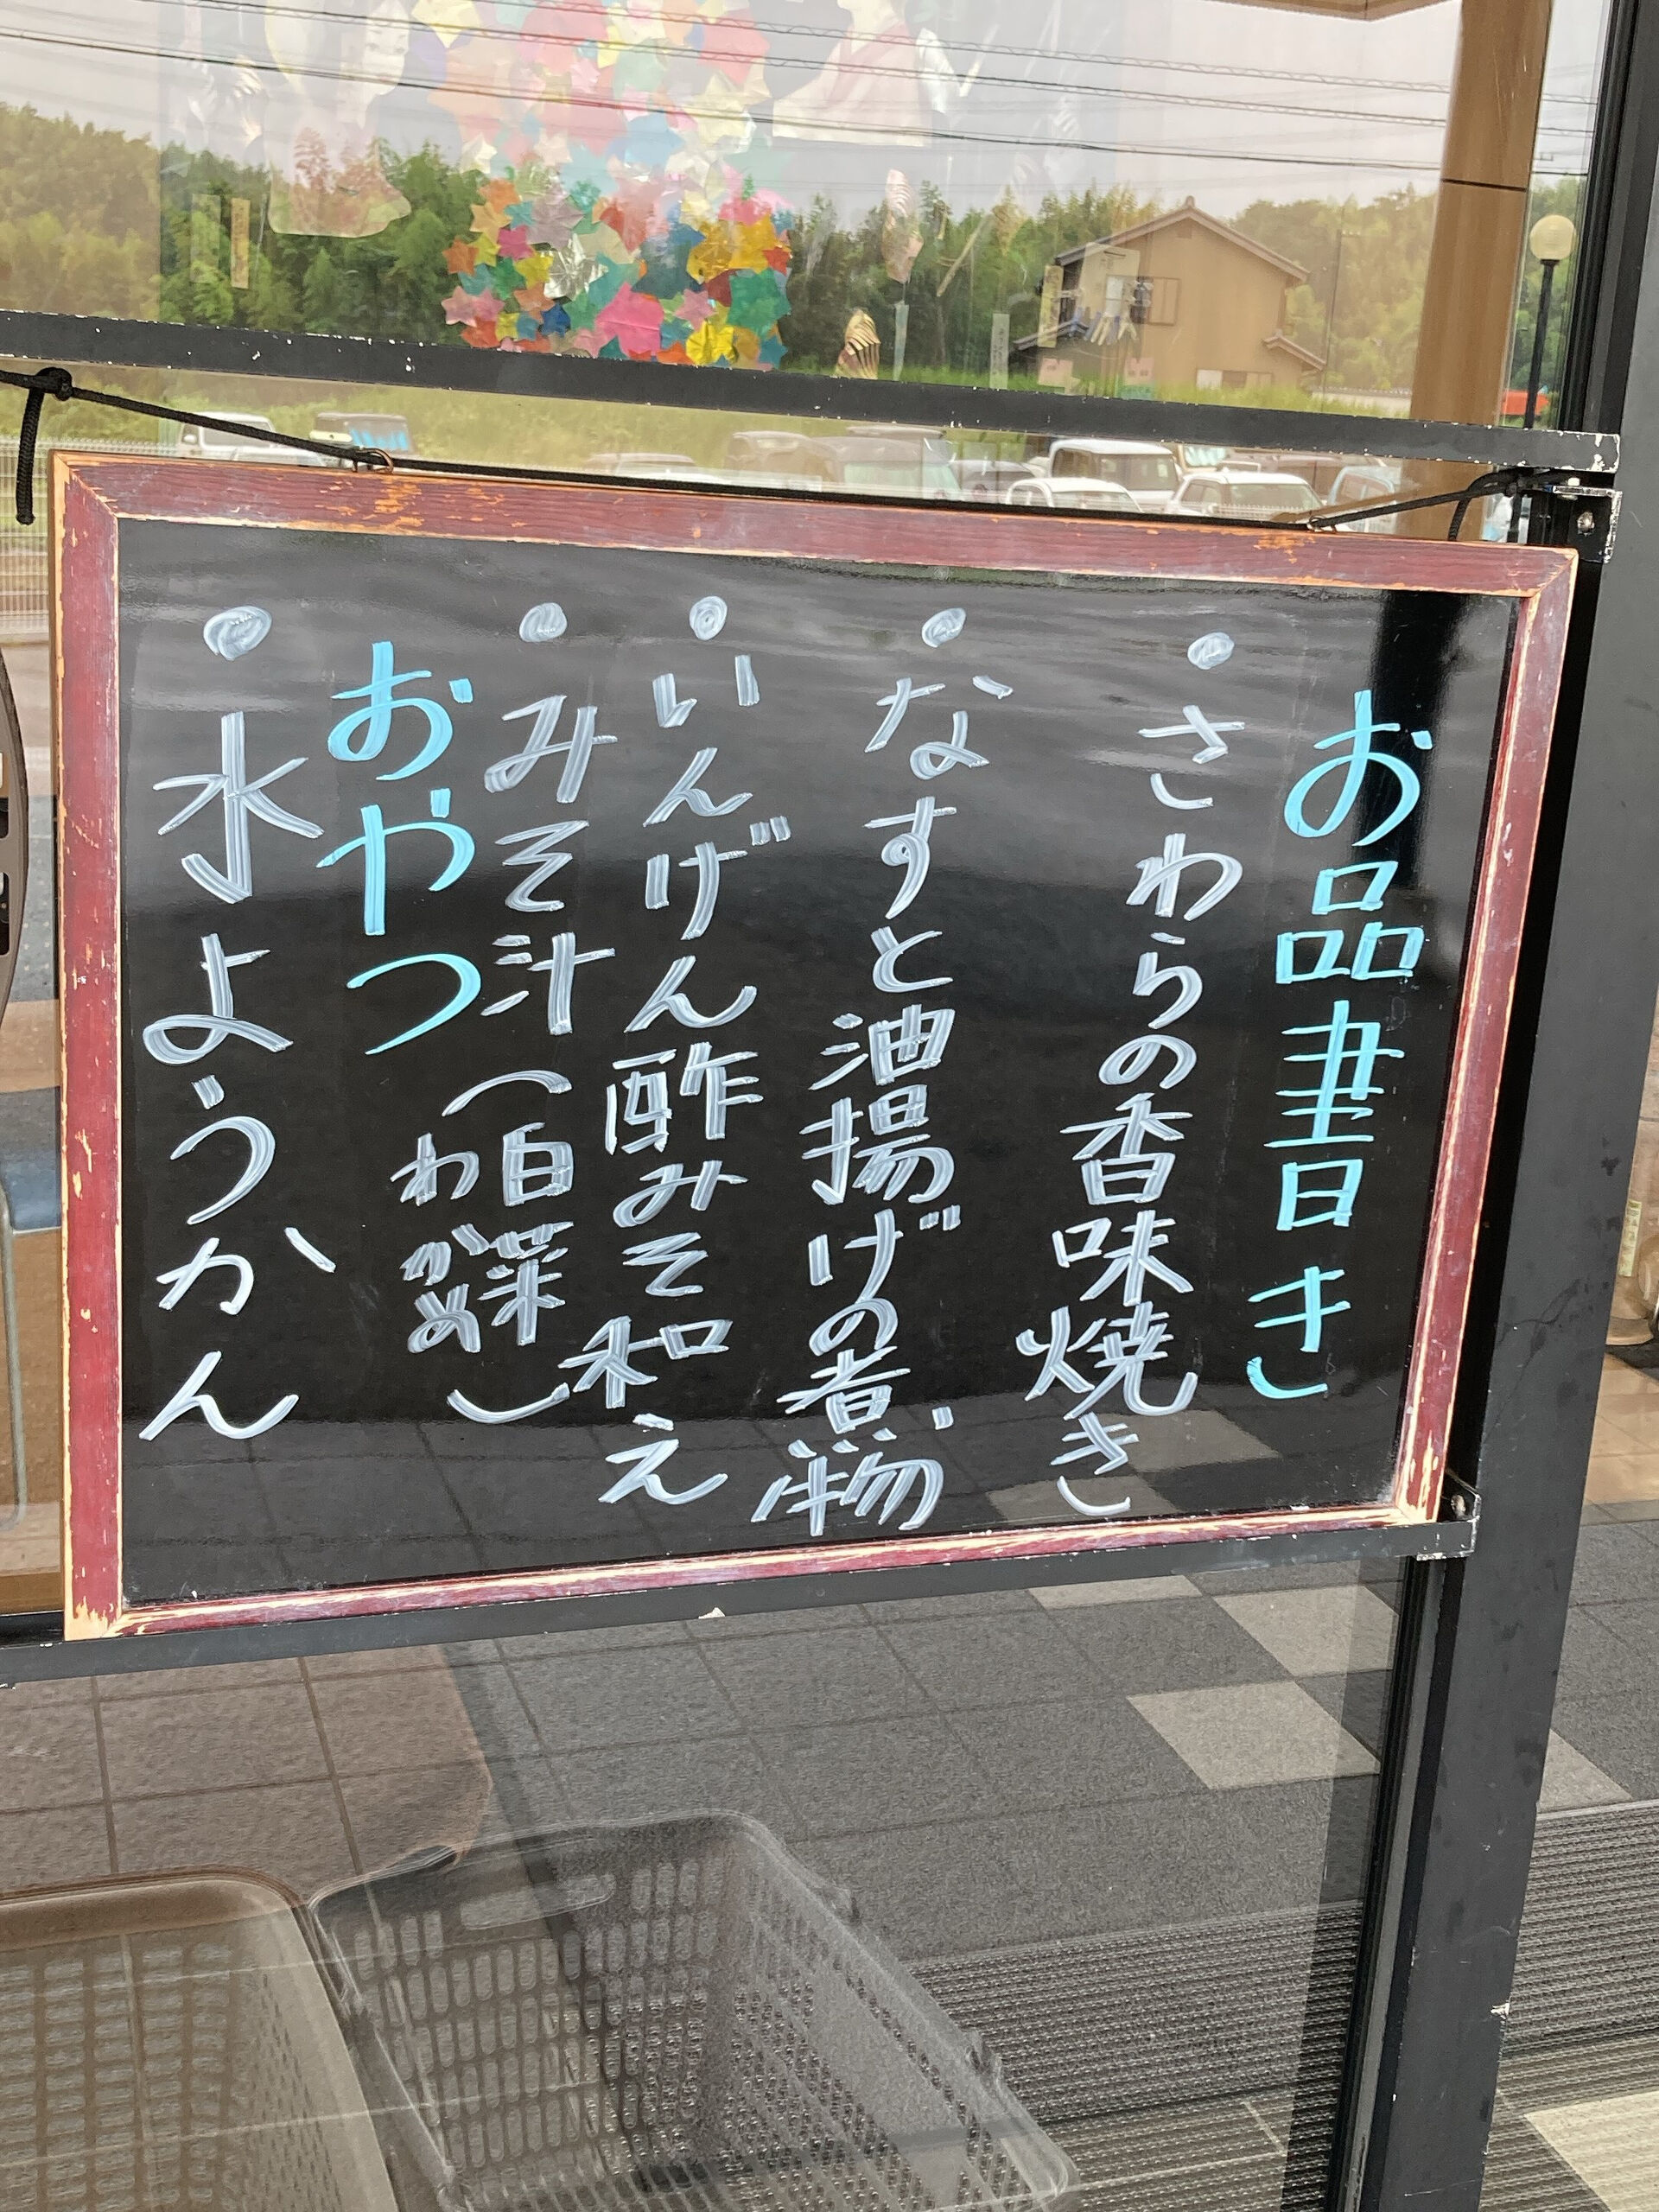 お品書き
・さわらの香味焼き
・なすと油揚げの煮物
・いんげん酢みそ和え
・みそ汁(白菜
わかめ)
おやつ
・水ようかん